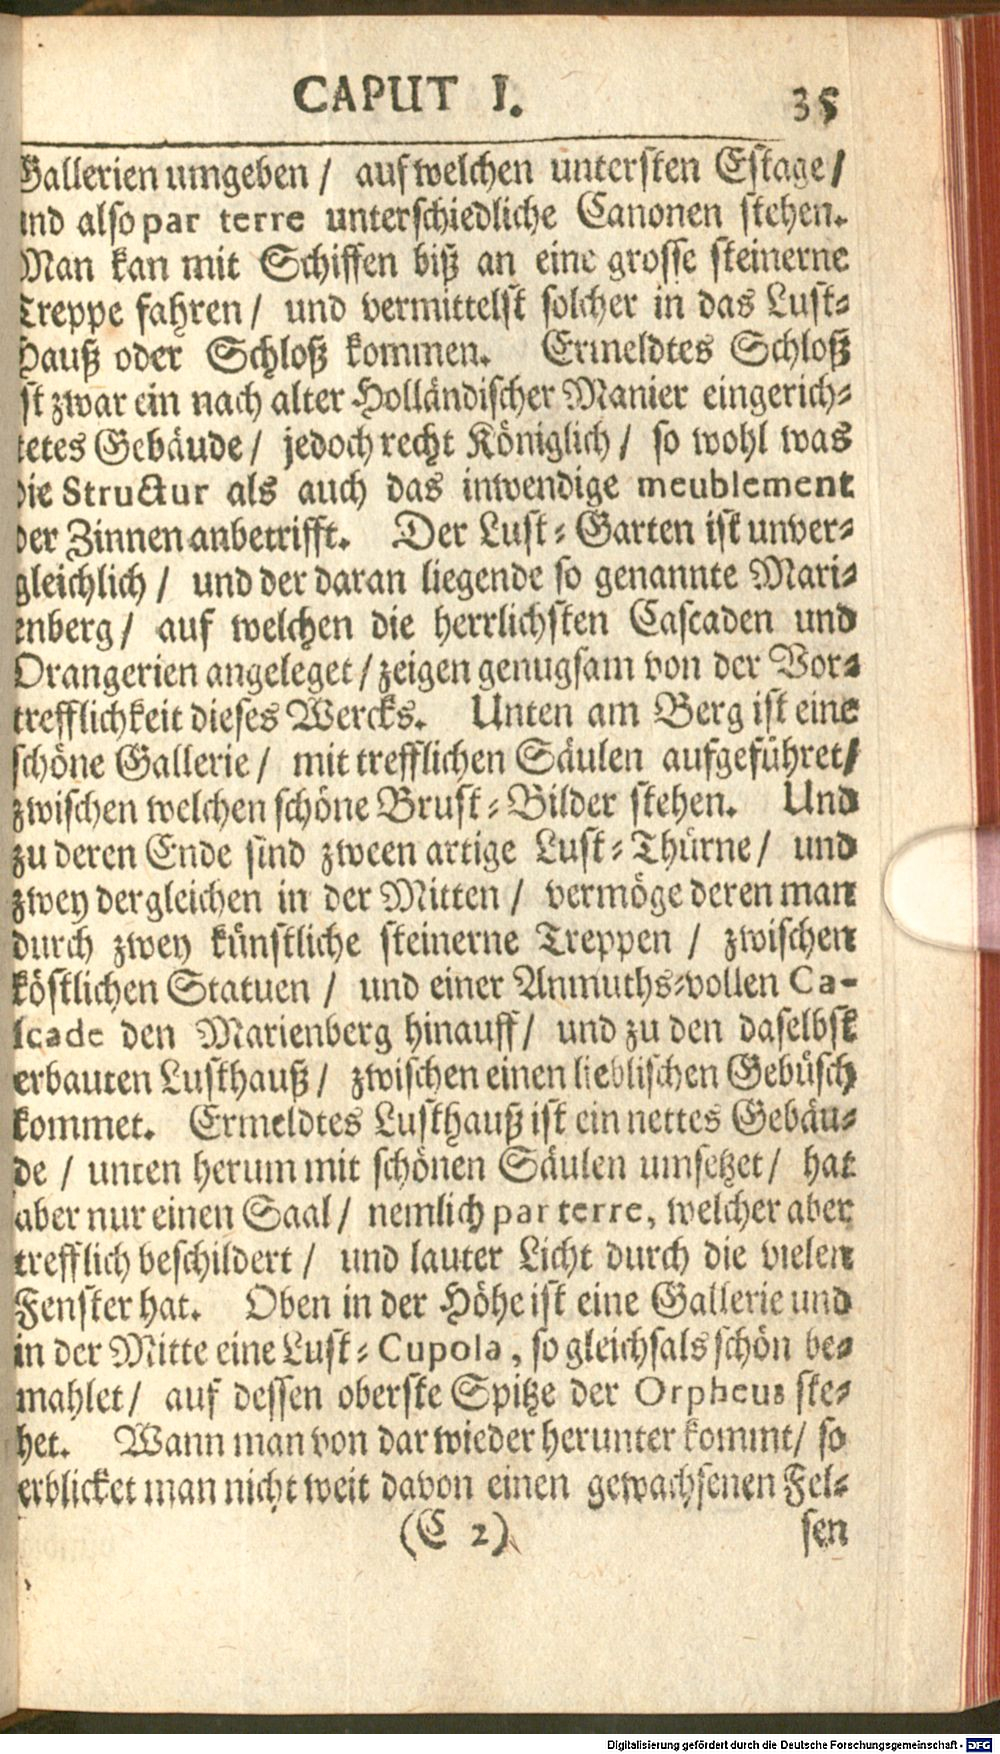 CAPUT I. 35
Gallerien umgeben / auf welchen untersten Estage /
und also par terre unterschiedliche Canonen stehen.
Man kan mit Schiffen biß an eine grosse steinerne
Treppe fahren / und vermittelst solcher in das Lust-
Hauß oder Schloß kommen. Ermeldtes Schloß
ist zwar ein nach alter Holländischer Manier eingerich-
tetes Gebäude / jedoch recht Königlich / so wohl was
die Structur als auch das inwendige meublement
der Zinnen anbetrifft. Der Lust-Garten ist unver-
gleichlich / und der daran liegende so genannte Mari-
enberg / auf welchen die herrlichsten Cascaden und
Orangerien angeleget / zeigen genugsam von der Vor-
trefflichkeit dieses Wercks. Unten am Berg ist eine
schöne Gallerie / mit trefflichen Säulen aufgeführet /
zwischen welchen schöne Brust-Bilder stehen. Und
zu deren Ende sind zween artige Lust-Thürne / und
zwey dergleichen in der Mitten / vermöge deren man
durch zwey künstliche steinerne Treppen / zwischen
köstlichen Statuen / und einer Anmuths-vollen Ca-
scade den Marienberg hinauff / und zu den daselbst
erbauten Lusthauß / zwischen einen lieblischen Gebüsch
kommet. Ermeldtes Lusthauß ist ein nettes Gebäu-
de / unten herum mit schönen Säulen umsetzet / hat
aber nur einen Saal / nemlich par terre, welcher aber
trefflich beschildert / und lauter Licht durch die vielen
Fenster hat. Oben in der Höhe ist eine Gallerie und
in der Mitte eine Lust-Cupola, so gleichsals schön be-
mahlet / auf dessen oberste Spitze der Orpheus ste-
het. Wann man von dar wieder herunter kommt / so
erblicket man nicht weit davon einen gewachsenen Fel-
(C 2) sen
Digitalisierung gefördert durch die Deutsche Forschungsgemeinschaft - DFG